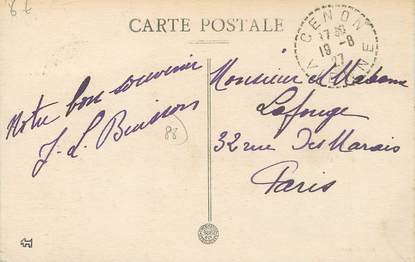 86
CARTE POSTALE
CENON
17 30
19 -8
27
VIENNE
Notre bon souvenir
J-L. Buisson
88
Monsieur et Madame
Lafouge
32 rue Des Marais
Paris